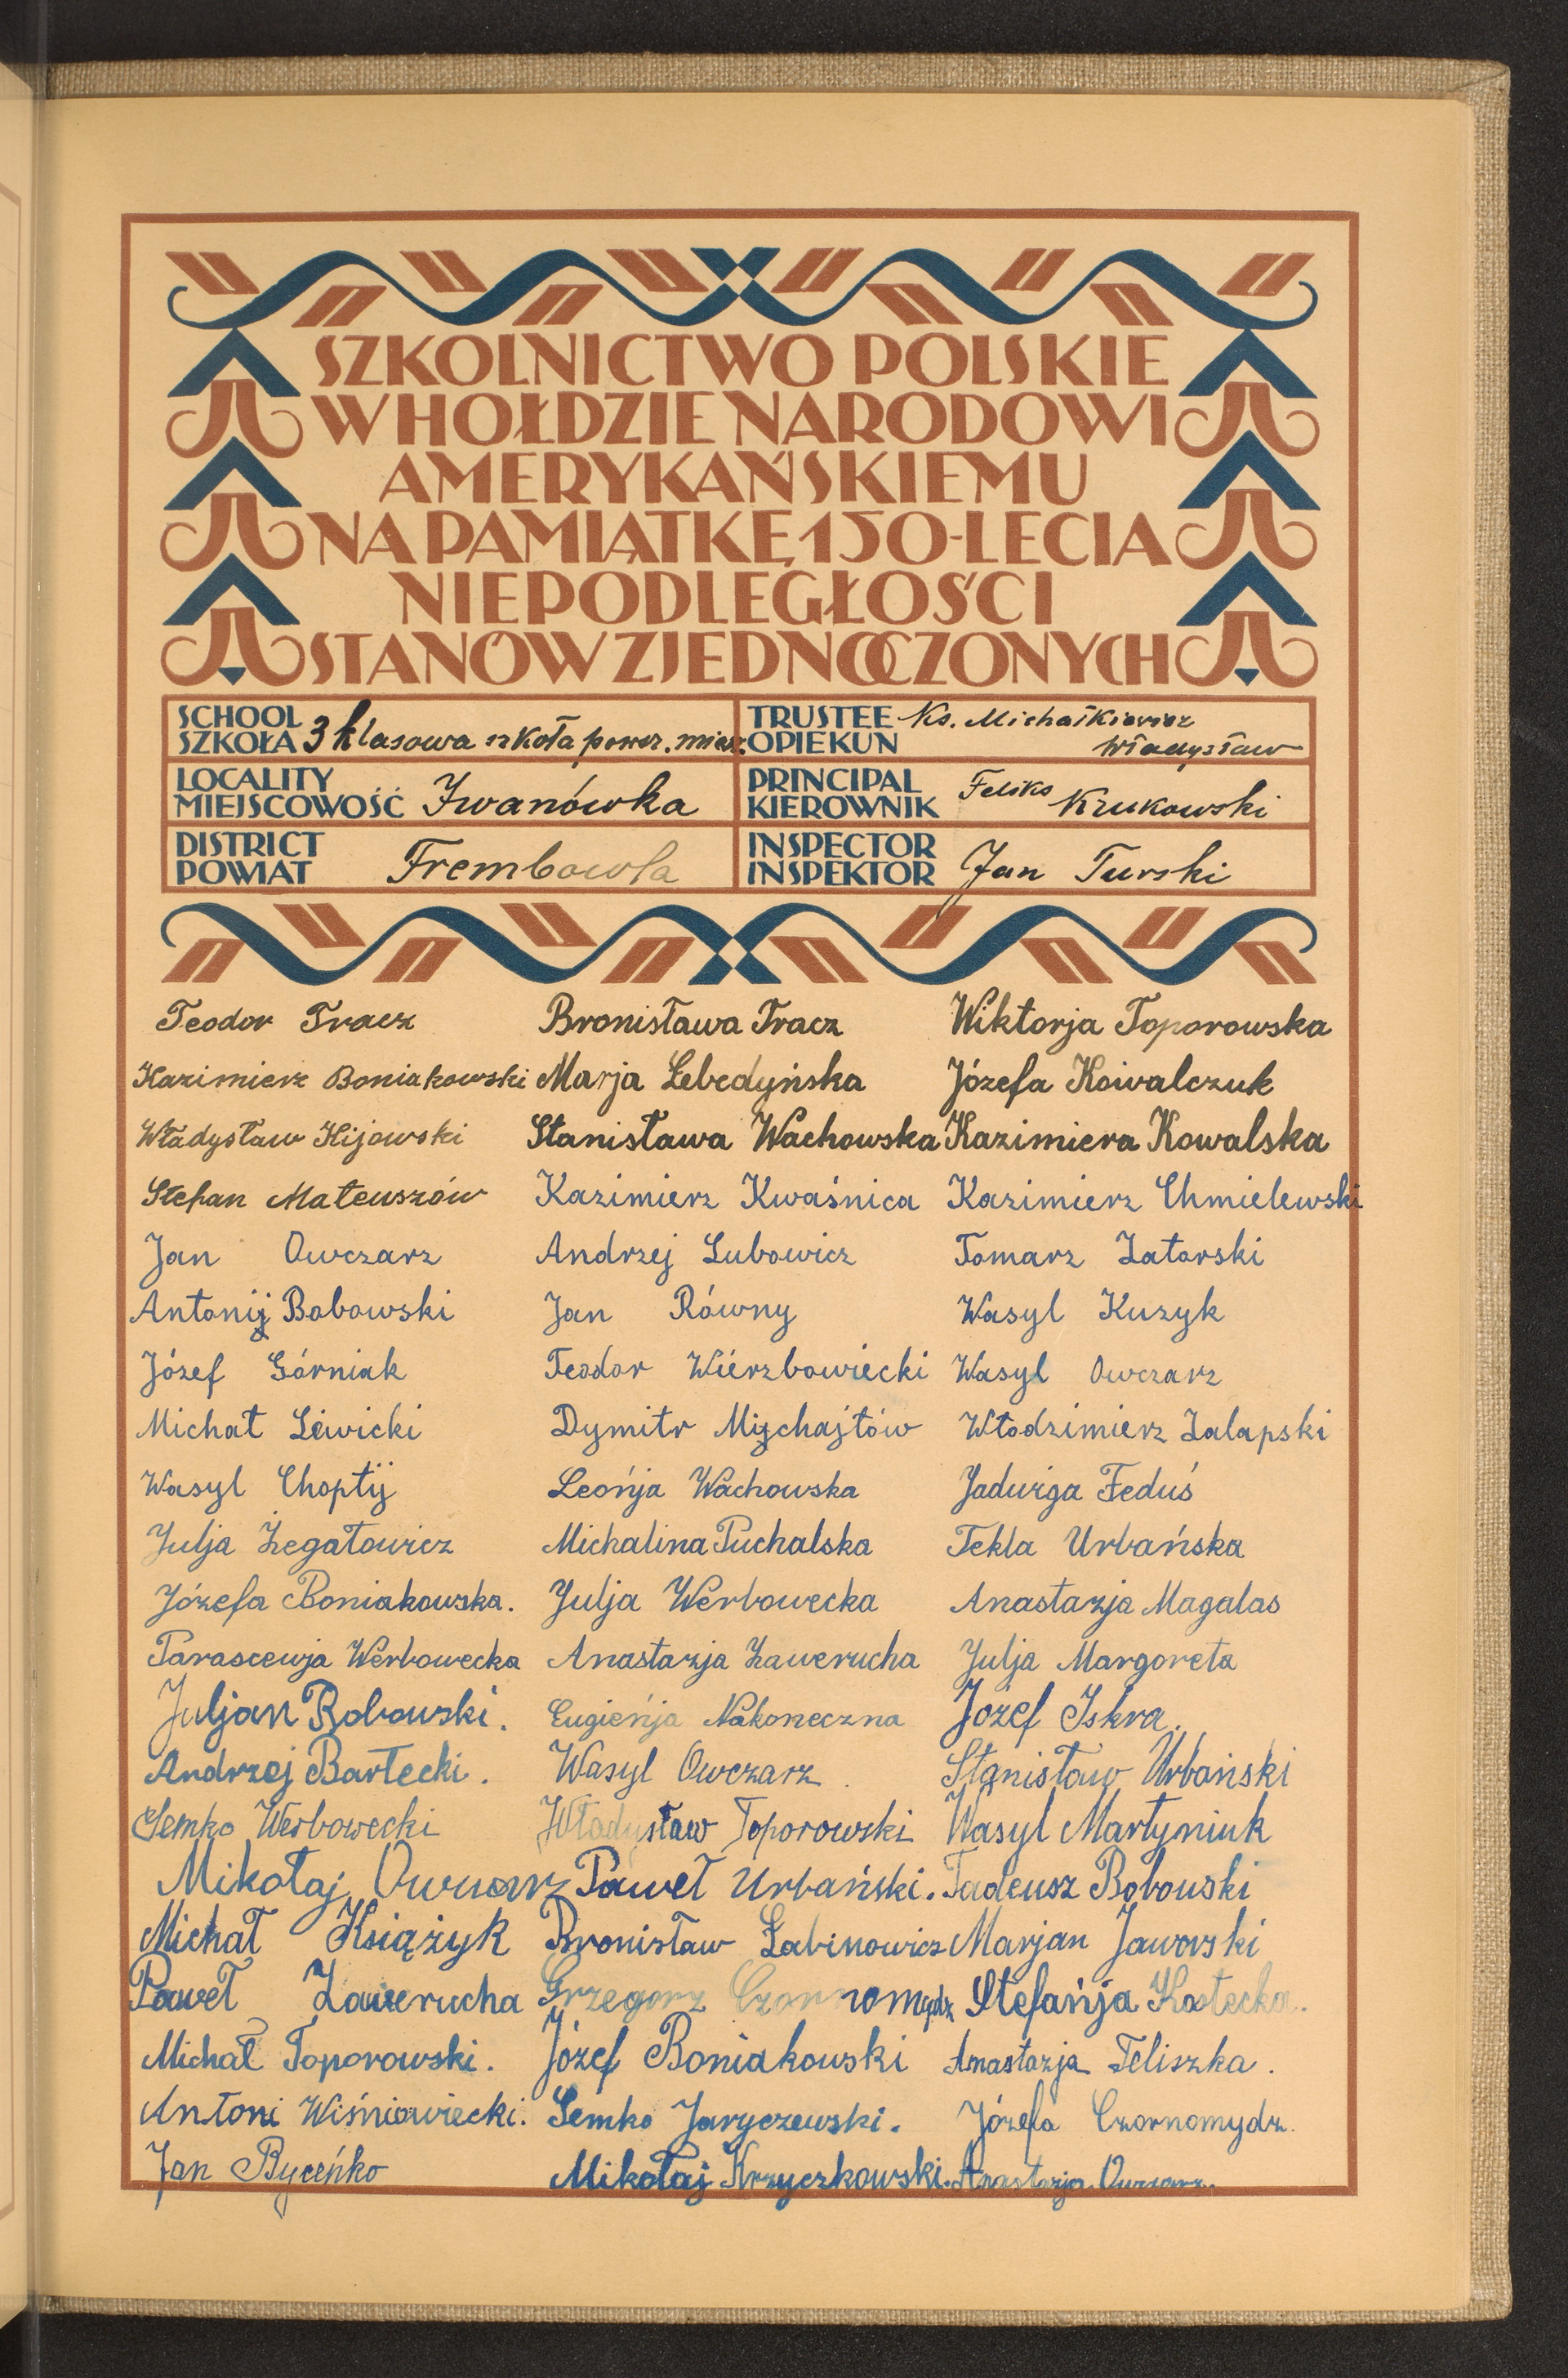 SZKOLNICTWO POLSKIE
W HOŁDZIE NARODOWI
AMERYKAŃSKIEMU
NA PAMIĄTKĘ 150-LECIA
NIEPODLEGŁOŚCI
STANÓW ZJEDNOCZONYCH
SCHOOL
SZKOŁA 3 klasowa szkoła powsz. miesz.
TRUSTEE Ks. Michałkiewicz
OPIEKUN Władysław
LOCALITY
MIEJSCOWOŚĆ Iwanówka
PRINCIPAL
KIEROWNIK Feliks Krukowski
DISTRICT
POWIAT Trembowla
INSPECTOR
INSPEKTOR Jan Turski
Teodor Tracz Bronisława Tracz Wiktorja Toporowska
Kazimierz Boniakowski Marja Lebedyńska Józefa Kowalczuk
Władysław Kijowski Stanisława Wachowska Kazimiera Kowalska
Stefan Mateuszów Kazimierz Kwaśnica Kazimierz Chmielewski
Jan Owczarz Andrzej Lubowicz Tomarz Zatorski
Antonij Bobowski Jan Równy Wasyl Kuzyk
Józef Górniak Teodor Wierzbowiecki Wasyl Owczarz
Michał Lewicki Dymitr Mychajłów Włodzimierz Załapski
Wasyl Choptij Leońja Wachowska Jadwiga Feduś
Julja Żegałowicz Michalina Puchalska Tekla Urbańska
Józefa Boniakowska. Julja Werbowecka Anastazja Magalas
Parascewja Werbowecka Anastazja Zawerucha Julja Margoreta
Juljan Bobowski. Eugieńja Nakoneczna Józef Iskra.
Andrzej Bartecki. Wasyl Owczarz. Stanisław Urbański
Semko Werbowecki Władysław Toporowski Wasyl Martyniuk
Mikołaj Owczarz Paweł Urbański. Tadeusz Bobowski
Michał Książyk Bronisław Łabinowicz Marjan Jaworski
Paweł Zawerucha Grzegorz Czornomydz Stefańja Kostecka.
Michał Toporowski. Józef Boniakowski Anastazja Teliszka.
Antoni Wiśniowiecki. Semko Jaryczewski. Józefa Czornomydz.
Jan Byceńko Mikołaj Krzyczkowski. Anastazja Owczarz.